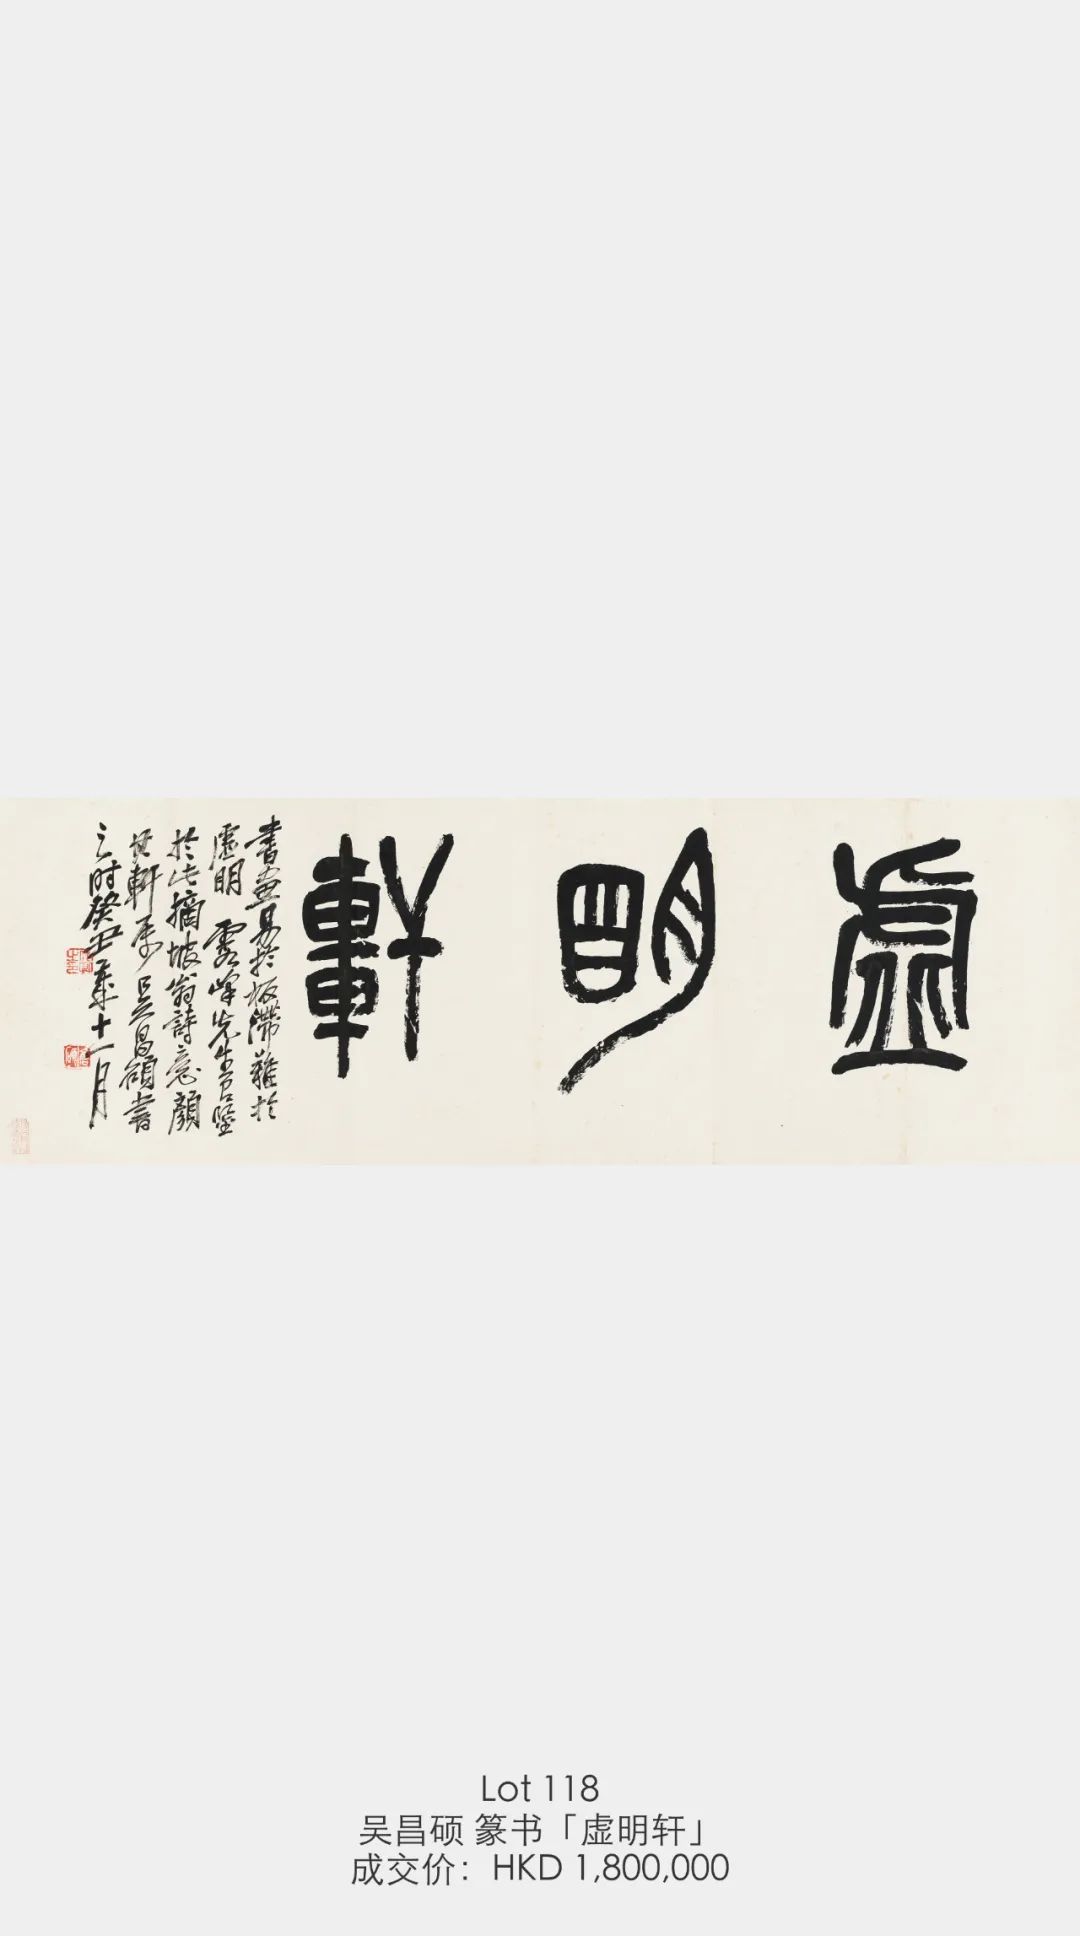 虛明軒
書畫易於板滯難於
虛明 霞峰先生占墜
於此摘坡翁詩意顏
其軒屬吳昌碩書
之時癸丑歲十一月
Lot 118
吴昌硕 篆书「虚明轩」
成交价：HKD 1,800,000